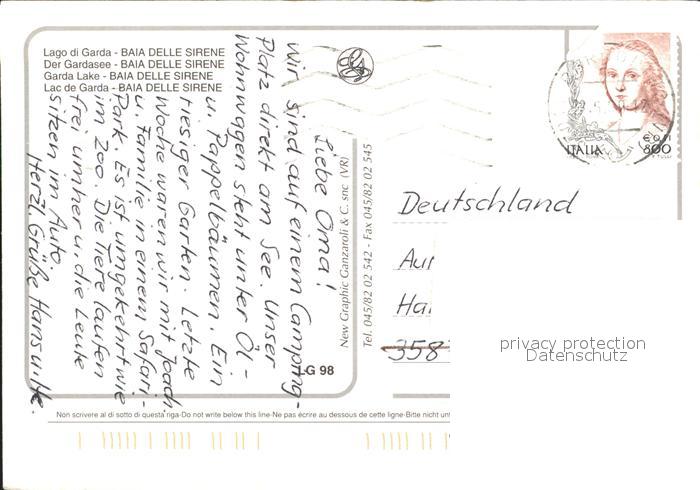 Lago di Garda - BAIA DELLE SIRENE
Der Gardasee - BAIA DELLE SIRENE
Garda Lake - BAIA DELLE SIRENE
Lac de Garda - BAIA DELLE SIRENE
Liebe Oma!
Wir sind auf einem Camping-
Platz direkt am See. Unser
Wohnwagen steht unter Öl-
u. Pappelbäumen. Ein
riesiger Garten. Letzte
Woche waren wir mit Joach.
u. Familie in einem Safari-
Park. Es ist umgekehrt wie
im Zoo. Die Tiere laufen
frei umher u. die Leute
sitzen im Auto.
Herzl. Grüße Hans u.
New Graphic Ganzaroli & C. snc (VR)
Tel. 045/82 02 542 - Fax 045/82 02 545
LG 98
ITALIA
€ 0,41
800
Deutschland
Au
Ha
358
privacy protection
Datenschutz
Non scrivere al di sotto di questa riga-Do not write below this line-Ne pas écrire au dessous de cette ligne-Bitte nicht unt